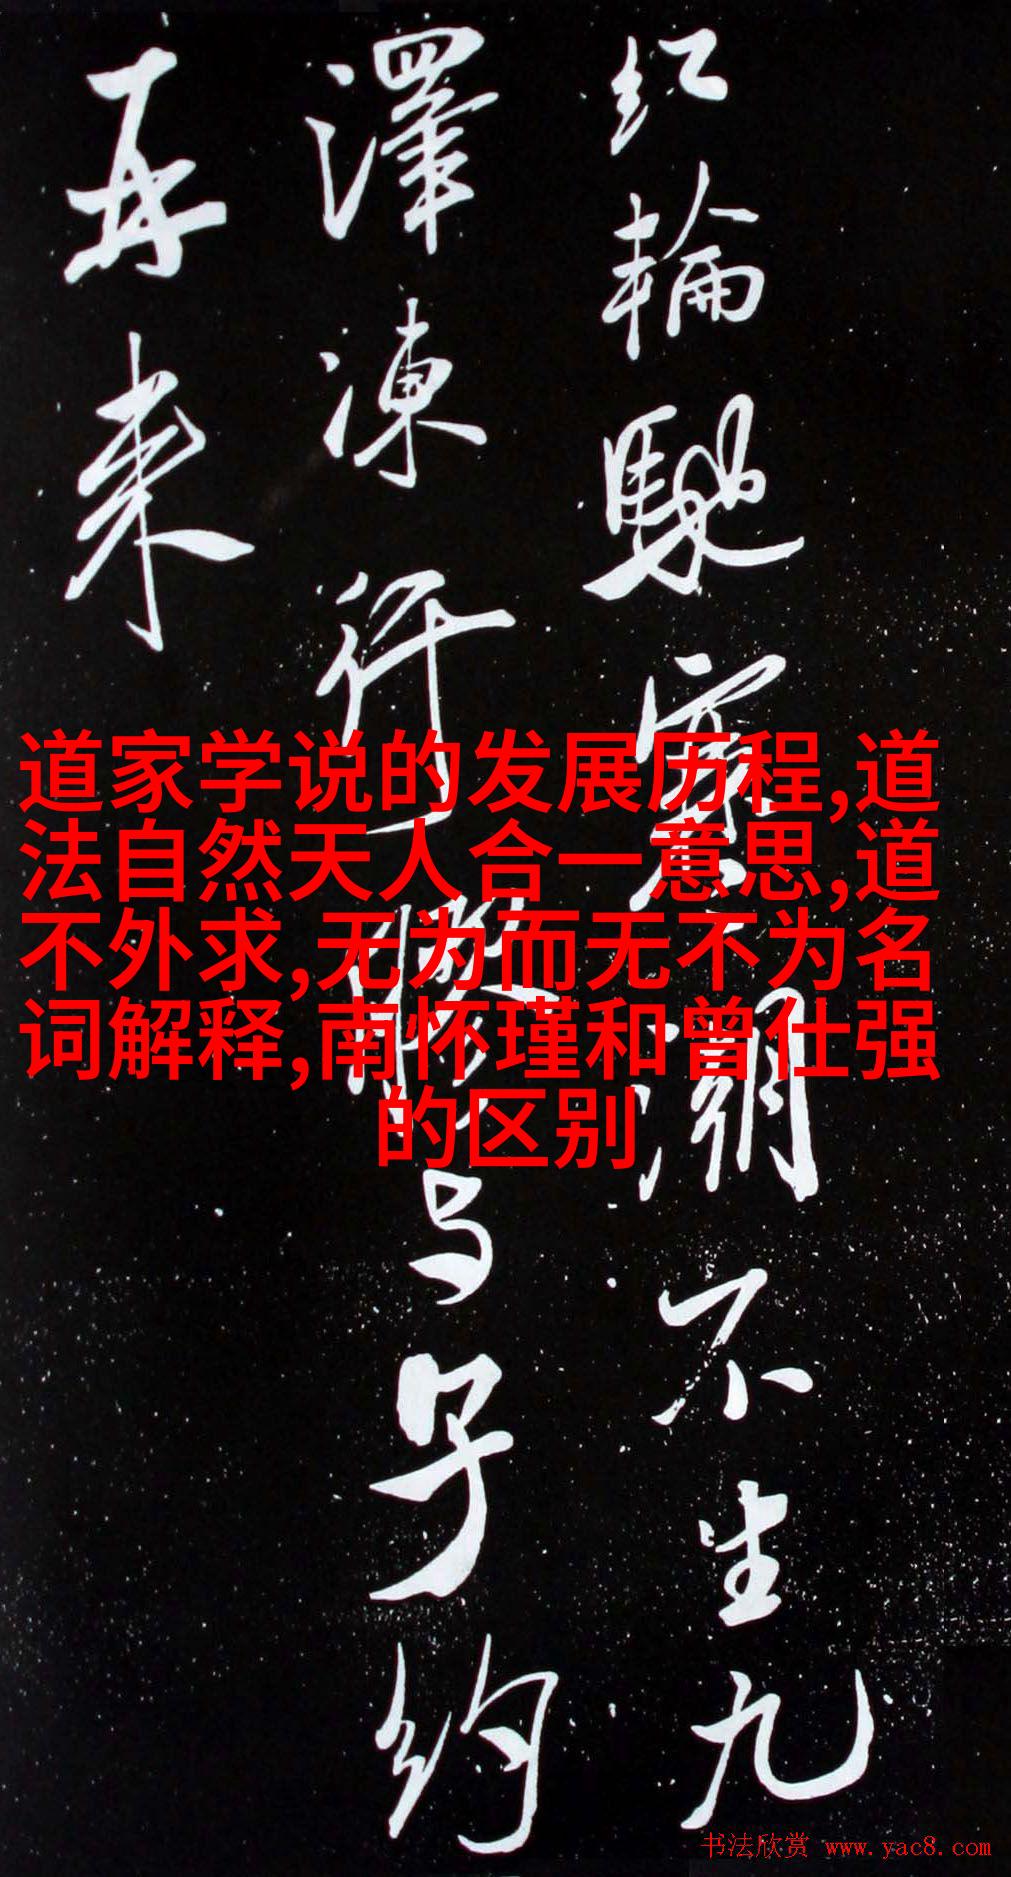 道家学说的发展历程,道
法自然天人合一意思,道
不外求,无为而无不为名
词解释,南怀瑾和曾仕强
的区别
红輪馳潮不生九
澤凍行与子約
再来
书法欣赏 www.yac8.com